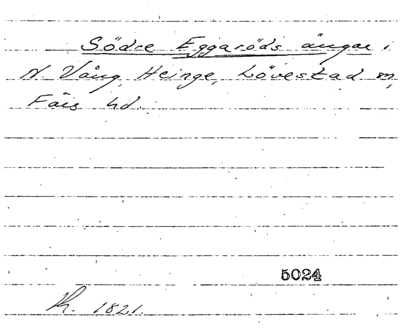 Södre Eggaröds ängar i
N. Vång, Heinge, Lövestad m,
Färs hd.
5024
Kh. 1821.